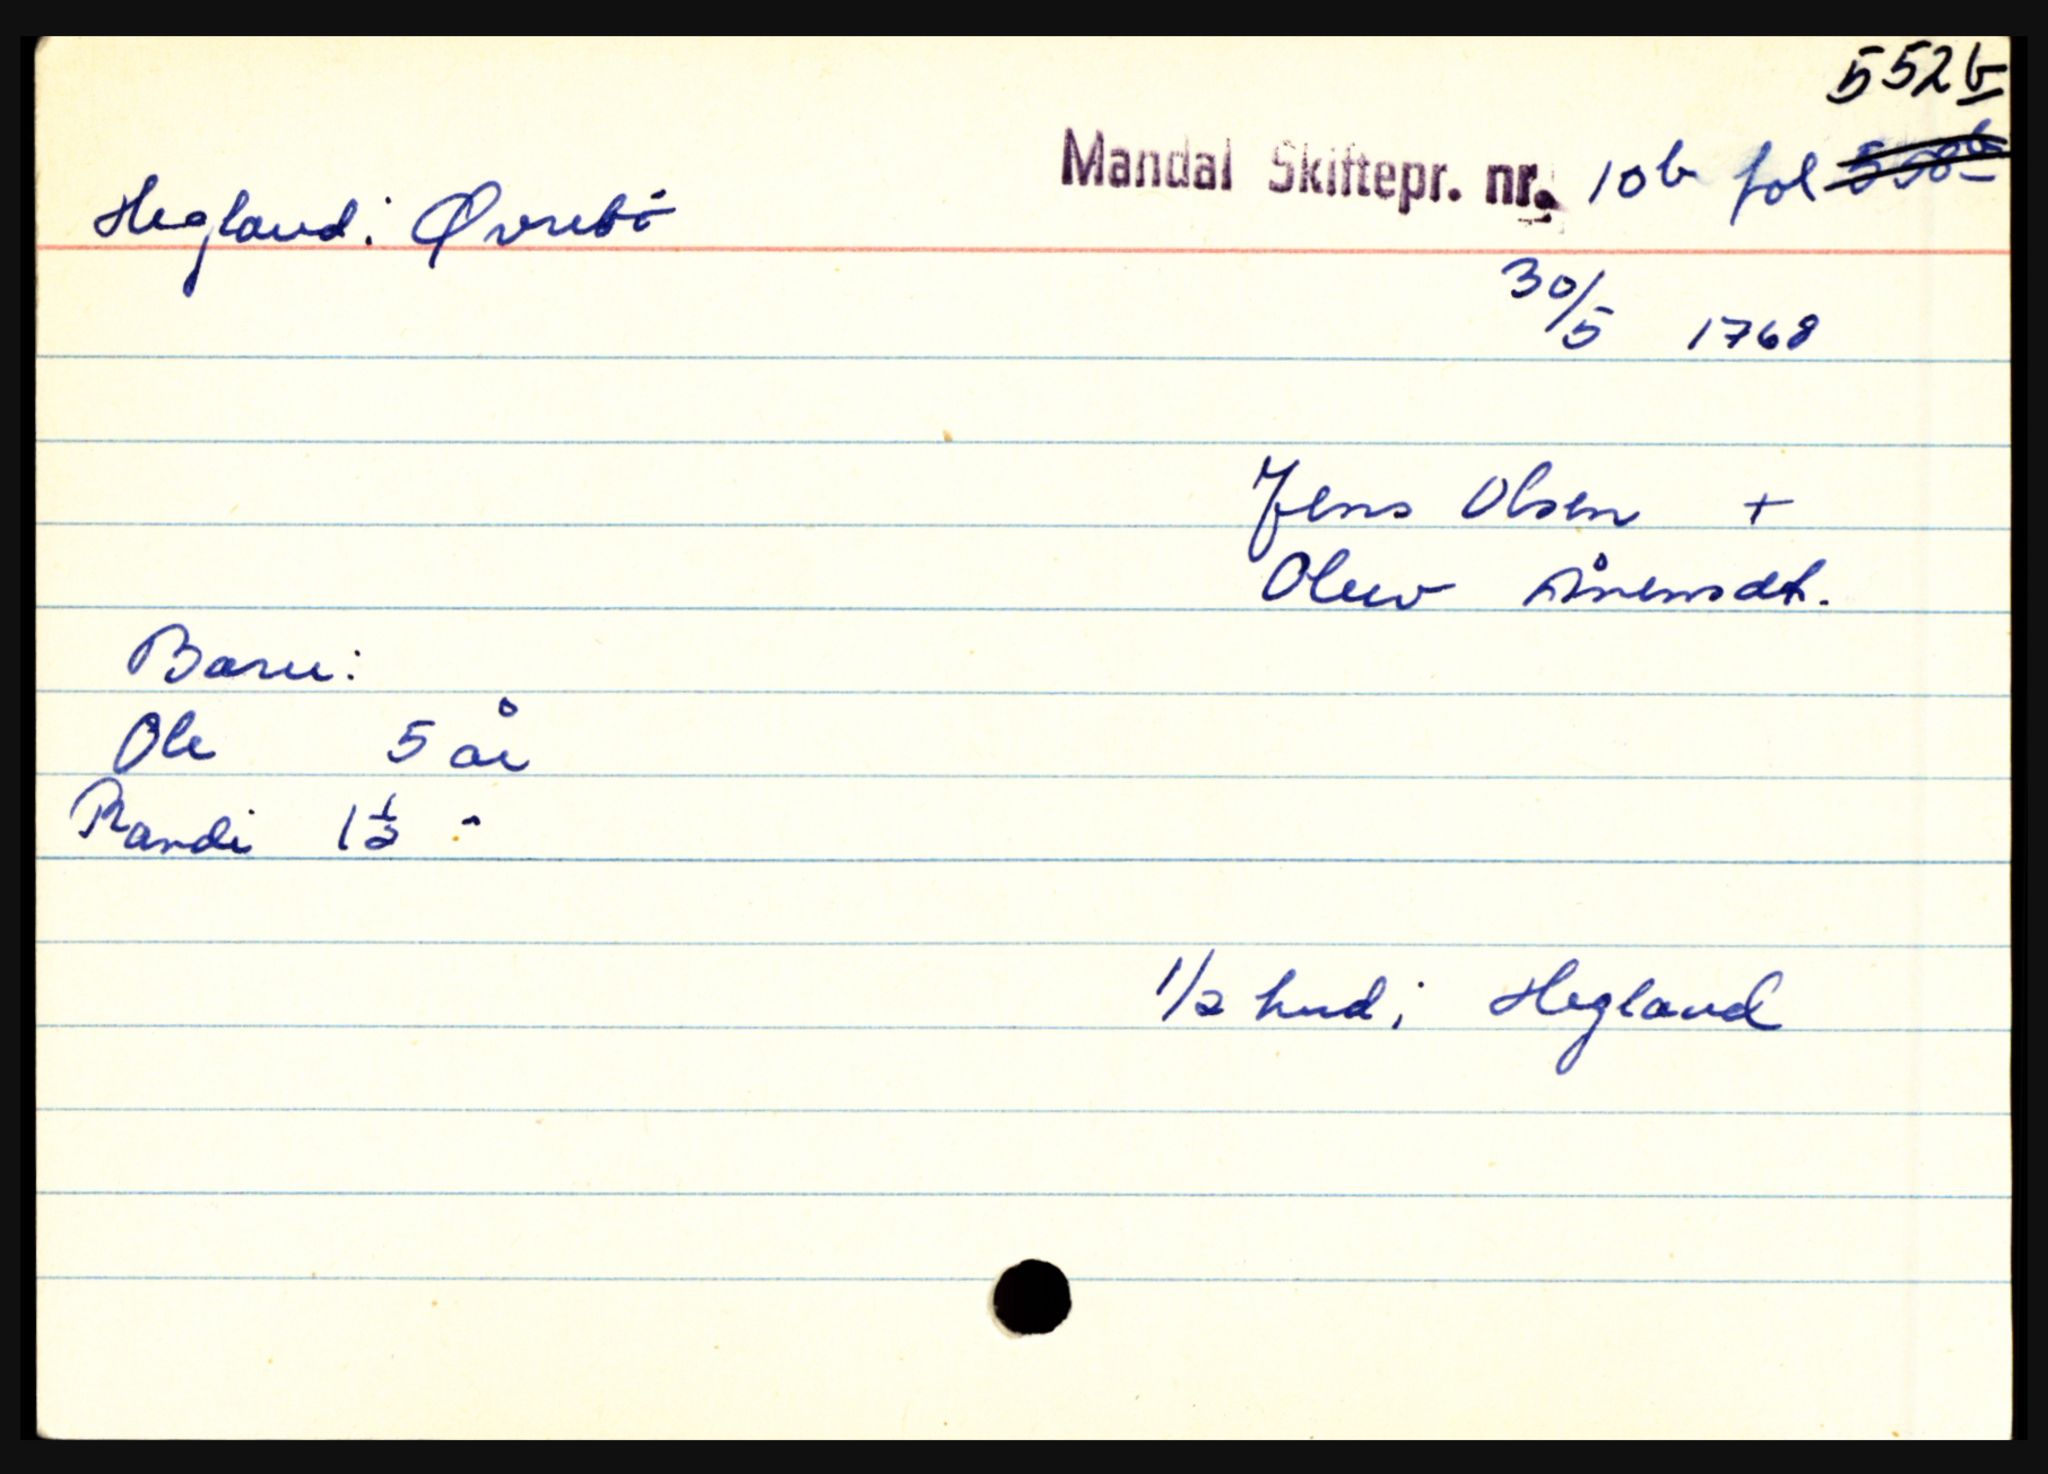 552b
Mandal Skiftepr. nr. 10b fol
Hegland: Øvrebö
30/5 1768
Jens Olsen +
Olene Ånensdt.
Barn:
Ole 5 år
Randi 1½ "
1/2 hud i Hegland